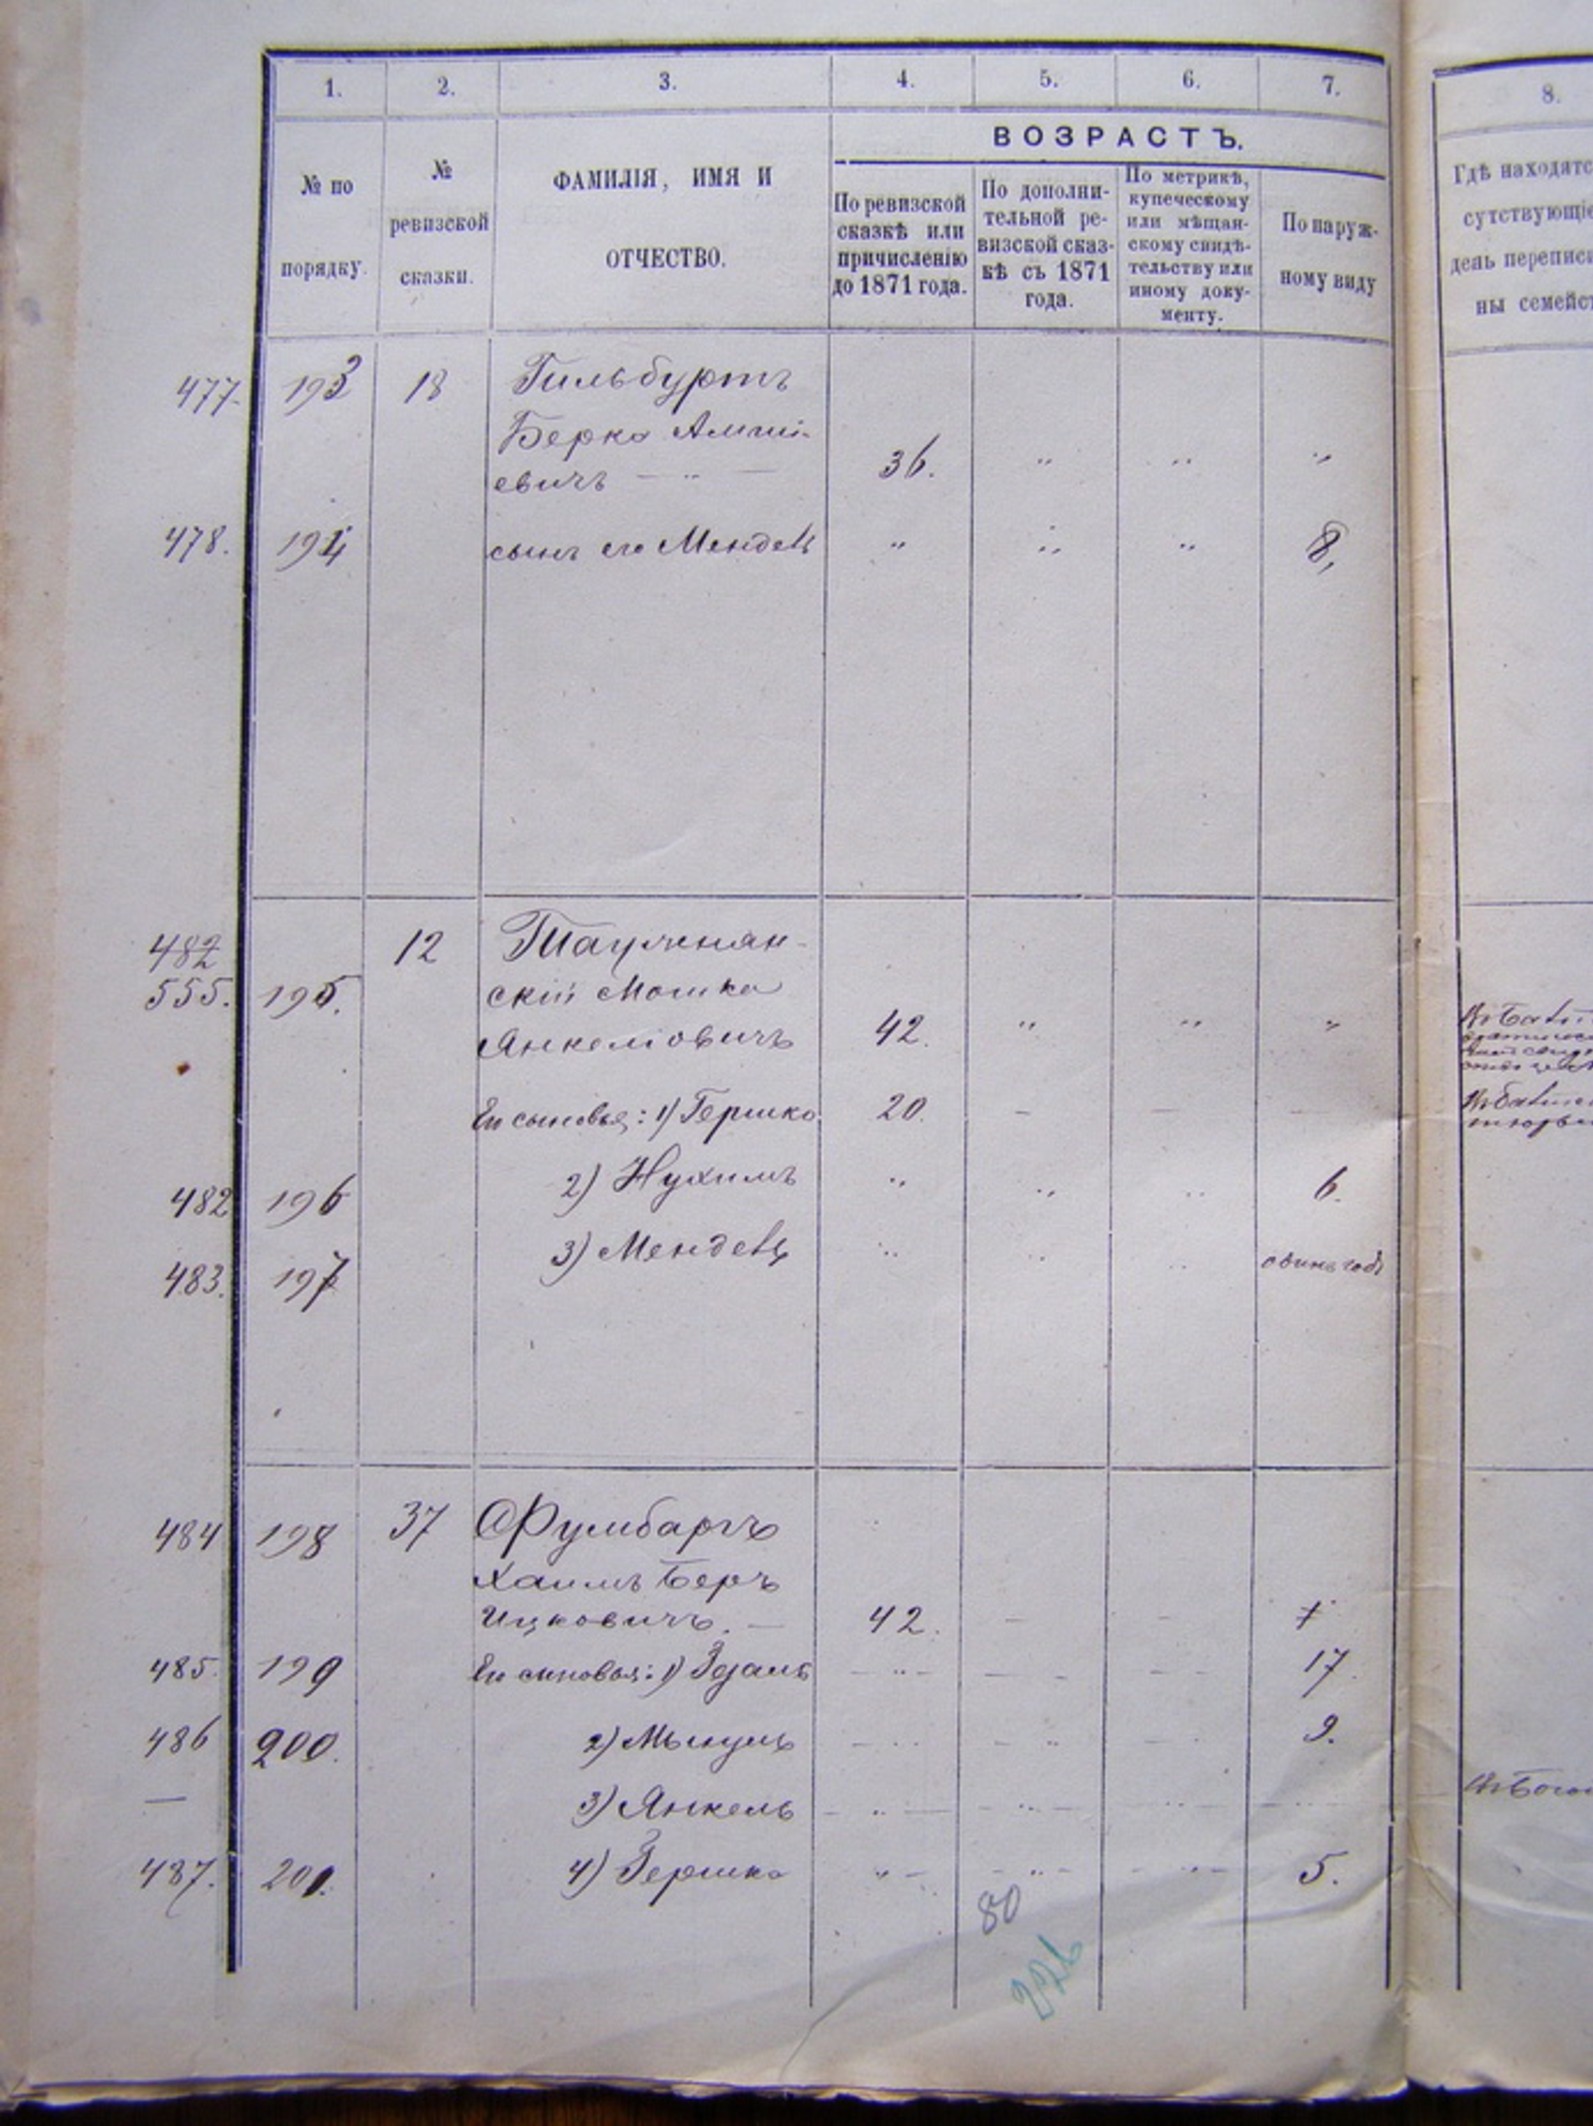 1. 2. 3. 4. 5. 6. 7. 8.
ВОЗРАСТЪ.
№ по
порядку.
№
ревизской
сказки.
ФАМИЛІЯ, ИМЯ И
ОТЧЕСТВО.
По ревизской
сказкѣ или
причисленію
до 1871 года.
По дополни-
тельной ре-
визской сказ-
кѣ съ 1871
года.
По метрикѣ,
купеческому
или мѣщан-
скому свидѣ-
тельству или
иному доку-
менту.
По наруж-
ному виду
Гдѣ находятс
сутствующіе
день переписи
ны семейст
477. 193 18 Гильбуртъ
Берко
евичъ — „ — 36. „ „ „
478. 194 сынъ его Мендель „ „ „ 8,
482 12
555. 195. скій Мошко
Янкеліовичъ 42. „ „ „
Его сыновья: 1) Гершко 20. — — —
482 196 2) Нухимъ „ „ „ 6.
483. 197 3) Мендель „ „ „ одинъ годъ
484 198 37 Фумбаргъ
Хаимъ Беръ
Ицковичъ. — 42. — —
485. 199 Его сыновья: 1) — „ — — — — — 17.
486 200. 2) — „ — „ — 9.
— 3) Янкель — „ — — „ — „ —
487. 201. 4) Гершко „ — — „ — — „ — 5.
80
226